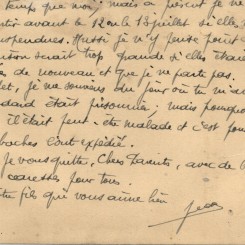 temps que moi; mais à présent je ne
tir avant le 12 ou le 13 juillet si elles
suspendues. Aussi je n'y pense point c
serait trop grande si elles étaient
de nouveau et que je ne parte pas.
, je me souviens du jour où tu m'a
était prisonnier; mais pourquoi
il était peut-être malade et c'est pour
boches l'ont expédié.
Je vous quitte, Chers Parents, avec de
caresses pour tous.
tre fils qui vous aime bien
Jean